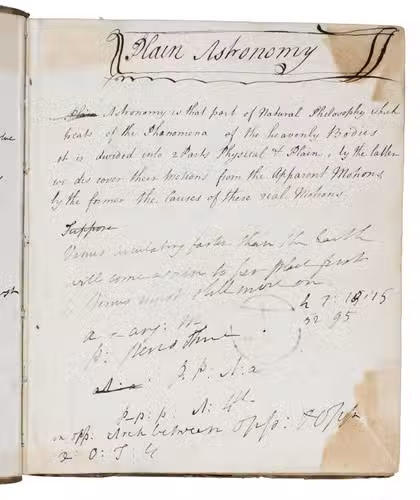 Plain Astronomy
Plain Astronomy is that part of Natural Philosophy which
treats of the Phænomena of the heavenly Bodies
it is divided into 2 Parts Physical & Plain, by the latter
we discover their Motions from the Apparent Motions
by the former the Causes of these real Motions
Suppose
Venus circulating faster than the Earth
will come again to her place first
Venus must still move on
p: p: p:
on opp: Arch between opp: & Opp: